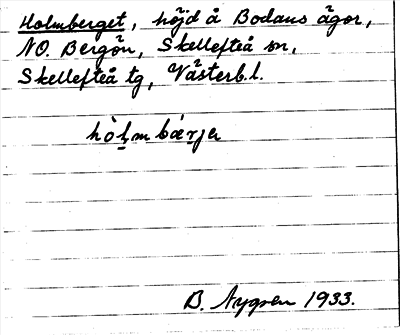 Holmberget, höjd å Bodans ägor,
NO. Bergön, Skellefteå sn,
Skellefteå tg, Västerb.l.
hòḷmbæ̀rjə
B. Nygren 1933.